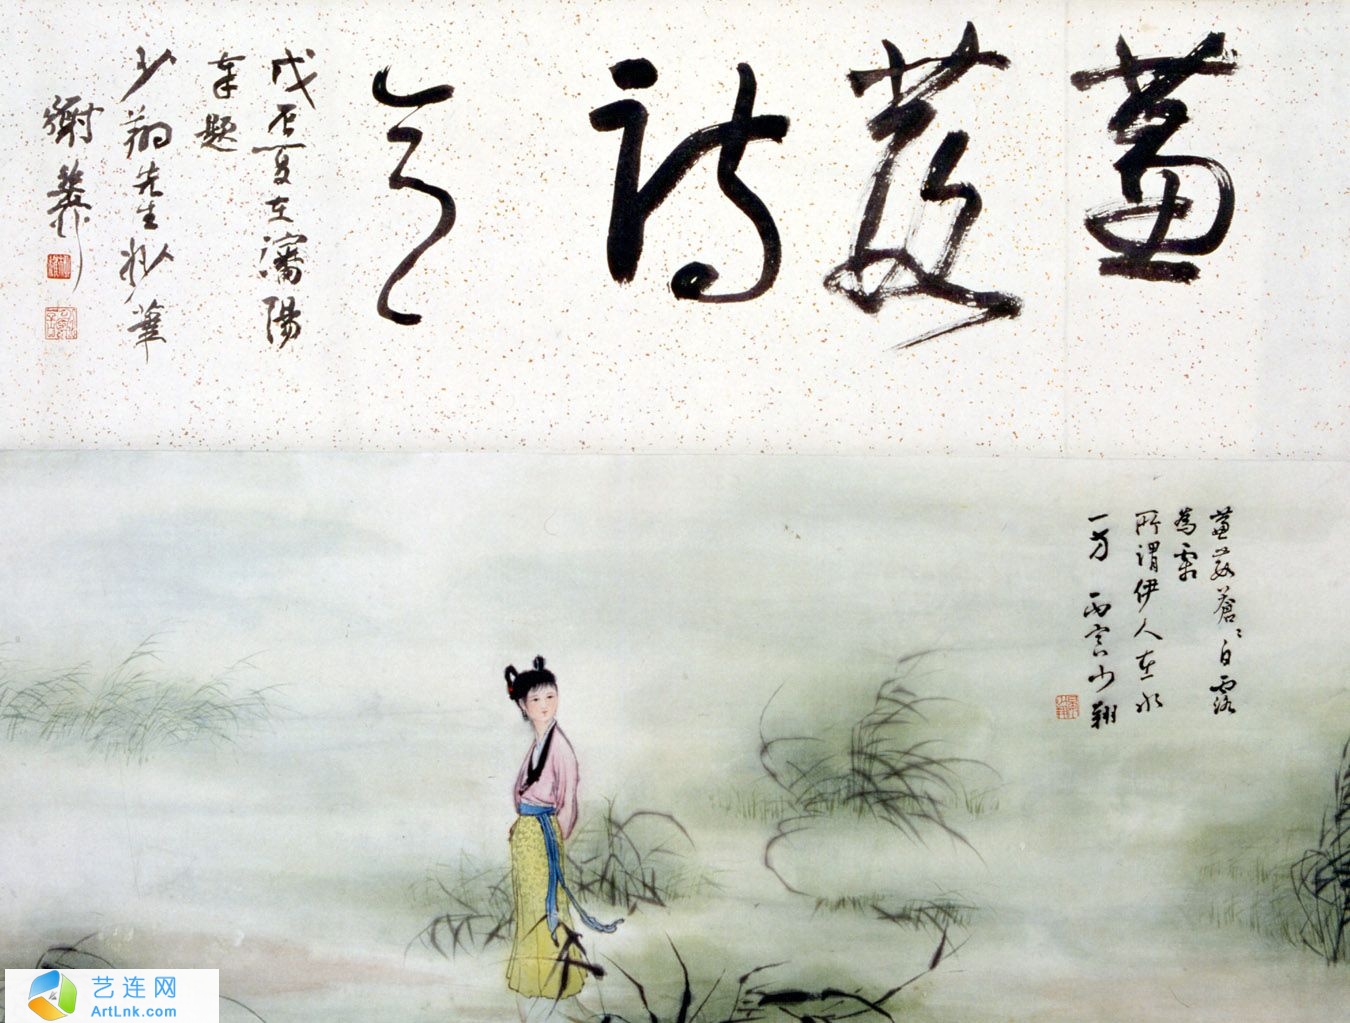 蒹葭诗意
戊辰夏在瀋陽
奉题
少翔先生妙筆
谢
蒹葭蒼〻白露
為霜
所谓伊人在水
一方 丙寅少翔
艺连网
ArtLnk.com